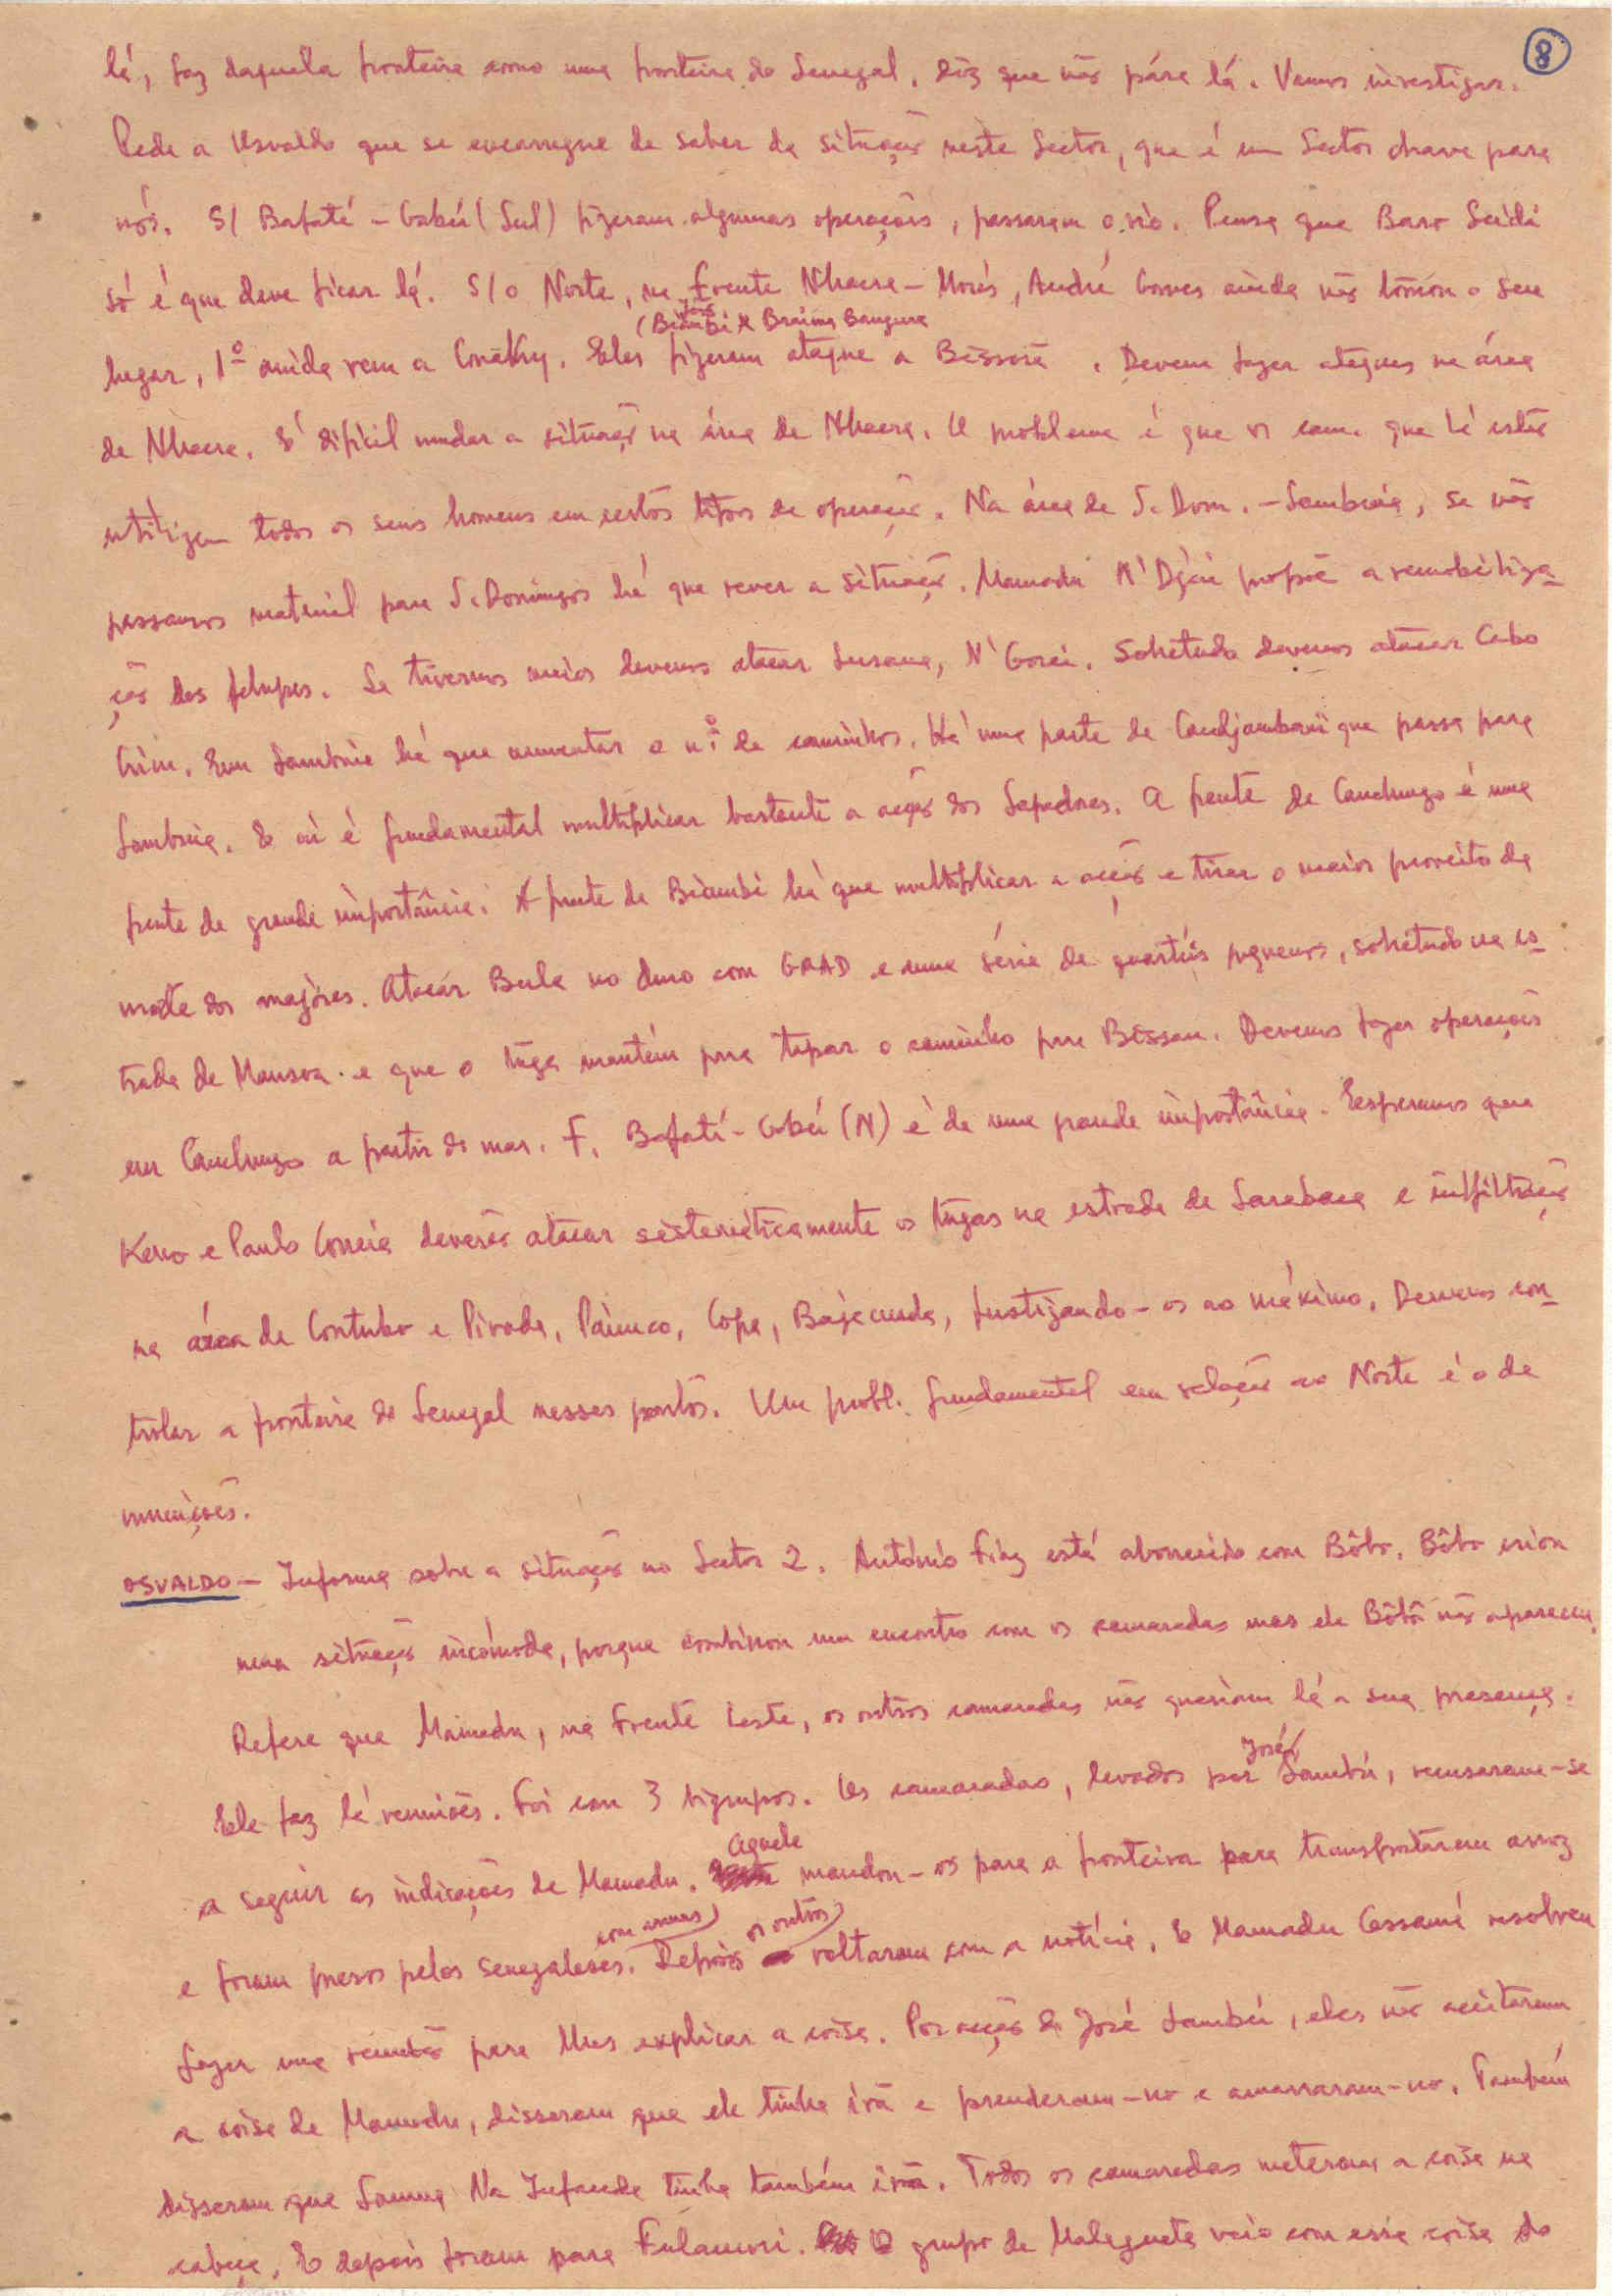 8
lá, faz daquela fronteira como uma fronteira do Senegal. Diz que não pára lá. Vamos investigar.
Pede a Osvaldo que se encarregue de saber da situação neste Sector, que é um Sector chave para
nós. S/ Bafatá - Gabú (Sul) fizeram algumas operações, passaram o rio. Pensa que Baro Seidi
só é que deve ficar lá. S/ o Norte, na frente Nhacra - Morés, André Gomes ainda não tomou o seu
(Biambi e Braima Bangura
lugar, 1º ainda vem a Conakry. Eles fizeram ataque a Bissorã. Devem fazer ataques na área
de Nhacra. É difícil mudar a situação na área de Nhacra. O problema é que os cam. que lá estão
utilizam todos os seus homens em certos tipos de operação. Na área de S. Dom. - Sambuiá, se não
passamos material para S. Domingos há que rever a situação. Mamadu N'Djai propõe a remobiliza-
ção dos felupes. Se tivermos meios devemos atacar Susana, N'Gorei. Sobretudo devemos atacar Cabo
Criu. Em Sambuiá há que aumentar o nº de caminhos. Há uma parte de Candjambari que passa para
Sambuiá. E aí é fundamental multiplicar bastante a acção dos Sapadores. A frente de Canchungo é uma
frente de grande importância. A frente de Biambi há que multiplicar a acção e tirar o maior proveito da
morte dos majores. Atacar Bula no duro com GRAD e uma série de quartéis pequenos, sobretudo na es-
trada de Mansoa e que o tuga mantém para tapar o caminho para Bissau. Devemos fazer operações
em Canchungo a partir do mar. F. Bafatá - Gabú (N) é de uma grande importância. Esperamos que
Keno e Paulo Correia deverão atacar sistemàticamente os tugas na estrada de Sarebaca e infiltração
na área de Contubo e Pirada, Paiunco, Copa, Bajacunda, fustigando-os ao máximo. Devemos con-
trolar a fronteira do Senegal nesses pontos. Um probl. fundamental em relação ao Norte é o de
munições.
OSVALDO - Informa sobre a situação no Sector 2. António Fiaz está aborrecido com Bôbo. Bôbo criou
numa situação incómoda, porque combinou um encontro com os camaradas mas ele Bôbô não apareceu.
Refere que Mamadu, na Frente Leste, os outros camaradas não queriam lá a sua presença.
Ele faz lá reuniões. Foi com 3 bigrupos. Os camaradas, levados por José Sambú, recusaram-se
a seguir as indicações de Mamadu. Aquele mandou-os para a fronteira para transportarem arroz
e foram presos pelos senegaleses. (com armas) Depois (os outros) voltaram com a notícia. E Mamadu Cassamá resolveu
fazer uma reunião para lhes explicar a coisa. Por acção de José Sambú, eles não aceitaram
a coisa de Mamadu, disseram que ele tinha irã e prenderam-no e amarraram-no. Também
disseram que Samna Na Infanda tinha também irã. Todos os camaradas meteram a coisa na
cabeça. E depois foram para Fulamori. O grupo de Malagueta veio com essa coisa do